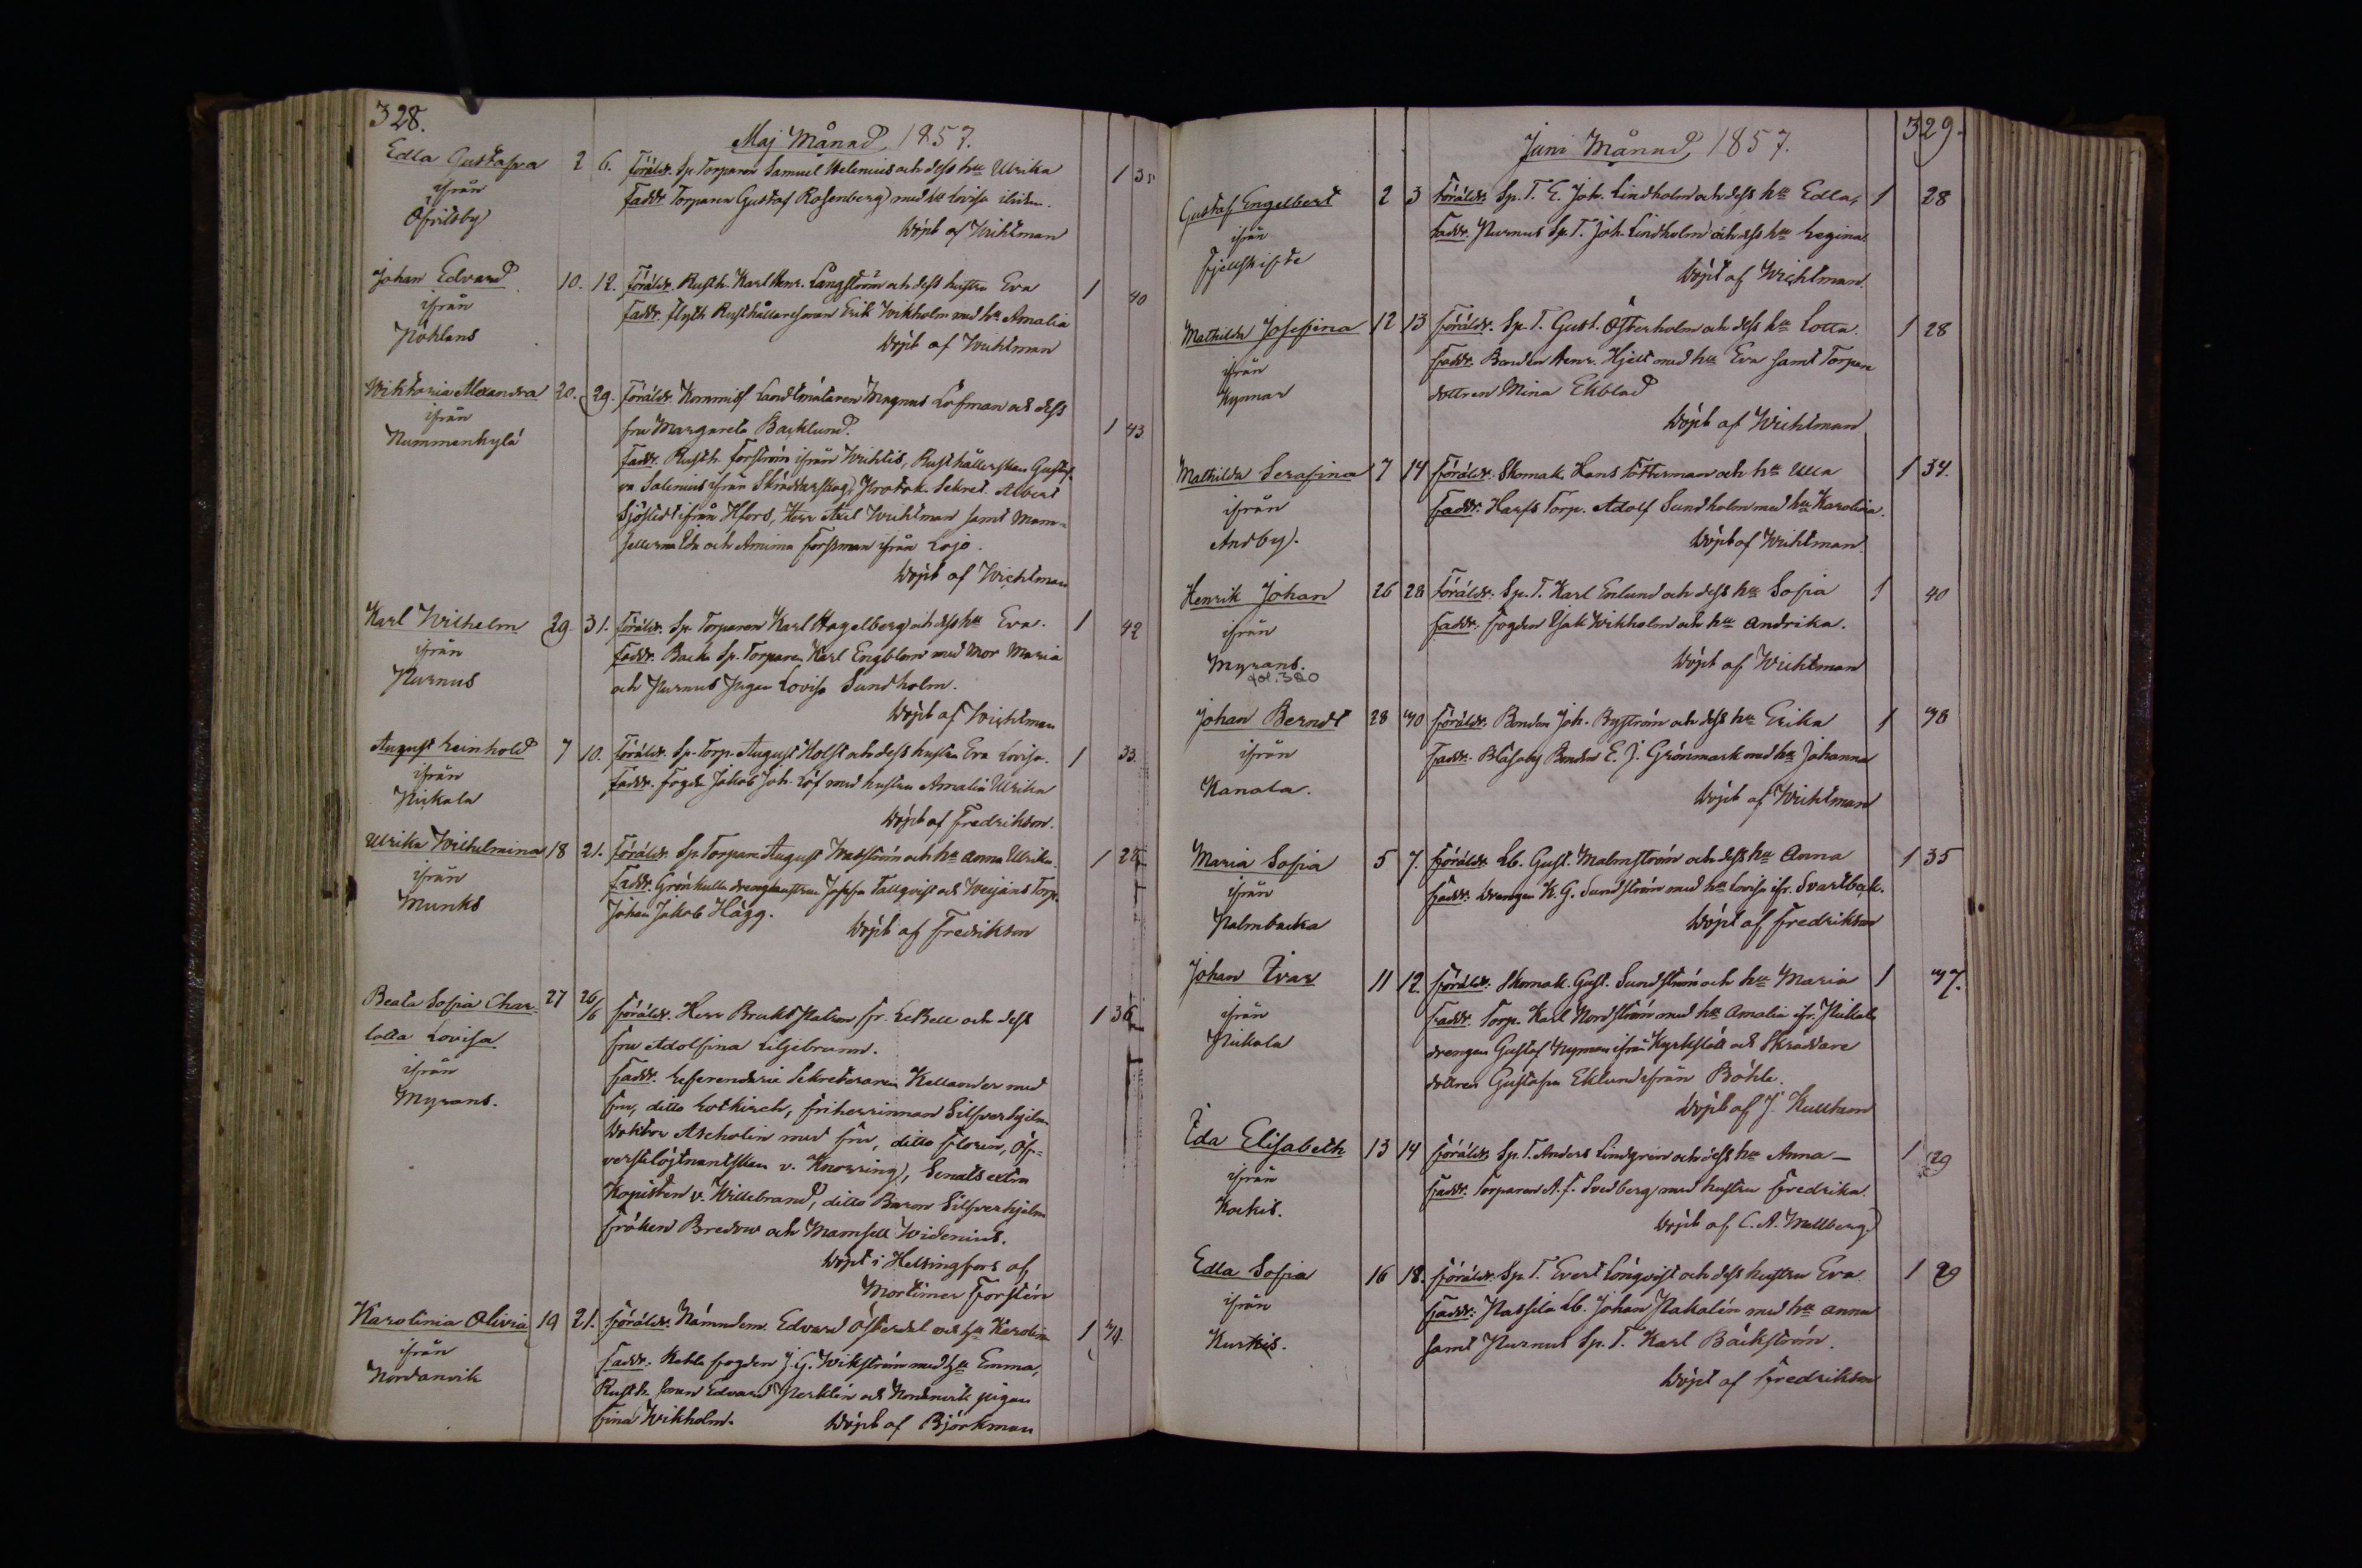 328.
Maj Månad 1857.
Edla Gustafva 2 6. Föräldr. Sp. Torparen Samuel Helenius och dess hu Ulrika 1 35
ifrån Faddr Torparen Gustaf Rosenberg med hu Lovisa
Öfvitsby
Döpt af Wichtman
Johan Edvard 10. 12. Föräldr. Rusth. Karl Henr. Långström och dess hustru Eva 1 40
ifrån Faddr. Rusthållaresonen Erik Wikholm med hu Amalia
Påhlans Döpt af Wichtman
Wiktoria Alexandra 20. 29. Föräldr. Kommiss Landtmätaren Magnus Löfman och dess
ifrån fru Margareta Backlund. 1 43
Nummenkylä Faddr. Rusth. Forström ifrån Wichtis, Rusthållerskan Gustaf-
va Salenius ifrån Skräddarskog, Protok. Sekret. Albert
Sjöstedt ifrån Hfors, Herr Axel Wichtman samt Mam-
sellerna Ida och Amima Forssman ifrån Lojo.
Döpt af Wichtman
Karl Wilhelm 29. 31. Föräldr. Sp. Torparen Karl Hagelberg och dess hu Eva. 1 42
ifrån Faddr. Backa Sp. Torparen Karl Engblom med Mor Maria
Purnus och Purnus Pigan Lovisa Sundholm.
Döpt af Wichtman
August Reinhold 7 10. Föräldr. Sp. Torp. August Holst och dess hustru Eva Lovisa. 1 33.
ifrån Faddr. Fogde Jakob Joh. Löf med hustru Amalia Ulrika
Pickala Döpt af Fredrikson.
Ulrika Wilhelmina 18 21. Föräldr. Sp. Torpare August Wadström och hu Anna Ulrika. 1
ifrån Faddr. Grönkulla drenghustrun Josefa Tallqvist och Weijans Torp.
Munks Johan Jakob Hägg.
Döpt af Fredrikson
Beata Sofia Char- 27 26/6 Föräldr. Herr Bruks Patron Fr. LeBell och dess 1 36
lotta Lovisa fru Adolfina Liljebrunn.
ifrån Faddr. Referendarie Sekreteraren Kellander med
Myrans. fru, ditto Rotkirch, friherrinnan Silfverhjelm
Doktor Ascholin med fru, ditto Florin, Öf-
verstelöjtnantskan v. Knorring, Senats extra
Kopisten v. Willebrand, ditto Baron Silfverhjelm
fröken Bredow och Mamsell Widenius.
Döpt i Helsingfors af
Mortimer Forstén
Karolinia Olivia 19 21. Föräldr. Nämndem. Edvard Österdal och hu Karolin 1
ifrån Faddr: Kabla fogden J. G. Wikström med hu Emma,
Nordanvik Rusth. sonen Edvard Necklin och Nordanvik pigan
Fina Wikholm. Döpt af Björkman
329.
Juni Månad 1857.
Gustaf Engelbert 2 3 Föräldr. Sp. T. E. Joh. Lindholm och dess hu Edla, 1 28
ifrån Faddr. Purnus Sp. T. Joh. Lindholm och dess hu Regina
Fjellskifte
Döpt af Wichtman.
Mathilda Josefina 12 13 Föräldr. Sp. T. Gust. Österholm och dess hu Lotta. 1 28
ifrån Faddr. Bonden Henr. Hjelt med hu Eva samt Torpare
Kynnar dottren Mina Ekblad
Döpt af Wichtman
Mathilda Serafina 7 14 Föräldr. Skomak. Hans Fötterman och hu Ulla 1 34.
ifrån Faddr. Harfs Torp. Adolf Sundholm med hu Karolina.
Andby. Döpt af Wichtman.
Henrik Johan 26 28 Föräldr. Sp. T. Karl Enlund och dess hu Sofia 1 40
ifrån Faddr. Fogden Isak Wikholm och hu Andrika.
Myrans. Döpt af Wichtman
fol. 380
Johan Berndt 28 30 Föräldr. Bonden Joh. Byström och dess hu Erika 1 38
ifrån Faddr. Blåsaby Bonden E. J. Grönmark med hu Johanna
Kanala. Döpt af Wichtman
Maria Sofia 5 7. Föräldr. Lb. Gust. Malmström och dess hu Anna 1 35
ifrån Faddr. Drengen K. G. Sundström med hu Lovisa ifr. Svartbäck.
Palmbacka Döpt af Fredrikson
Johan Ivar 11 12. Föräldr. Skomak. Gust. Sundström och hu Maria 1 37.
ifrån Faddr. Torp. Karl Nordström med hu Amalia ifr. Pickala
Pickala drengen Gustaf Nyman ifrån Kyrkslätt och Skraddare
dottren Gustafva Eklund ifrån Böhle.
Döpt af J. Kullhem
Ida Elisabeth 13 14 Föräldr. Sp. T. Anders Lindgren och dess hu Anna — 1 29
ifrån Faddr. Torparen A. F. Svedberg med hustru Fredrika.
Kockis. Döpt af C. A. Mellberg
Edla Sofia 16 18. Föräldr. Sp. T. Evert Lönqvist och dess hustru Eva 1 29
ifrån Faddr: Passila Lb. Johan Pakalén med hu Anna
Kurkis. samt Purnus Sp. T. Karl Bäckström.
Döpt af Fredrikson